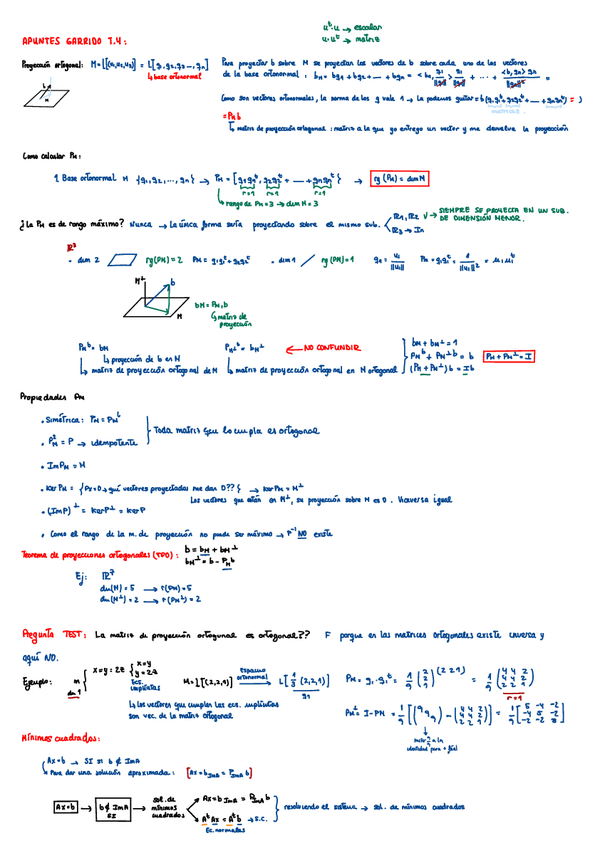 uᵗ·u → escalar
u·uᵗ → matriz
APUNTES GARRIDO 7.4:
Proyección ortogonal: M = L[(u₁,u₂,u₃)] = L[g₁, g₂, g₃ ... , gₙ]
↳ base ortonormal
Para proyectar b sobre M se proyectan los vectores de b sobre cada uno de los vectores
de la base ortonormal, bₘ = bg₁ + bg₂ + ... + bgₙ = <b₁, g₁> g₁ + ... + <b, gₙ> gₙ =
Como son vectores ortonormales, la norma de los g vale 1 → la podemos quitar = b(g₁g₁ᵗ + g₂g₂ᵗ + ... + gₙgₙᵗ) =
= Pₘ b
↳ matriz de proyección ortogonal: matriz a la que yo entrego un vector y me devuelve la proyección
Como calcular Pₘ:
1. Base ortonormal M {g₁, g₂, ..., gₙ} → Pₘ = [g₁g₁ᵗ, g₂g₂ᵗ + ... + gₙgₙᵗ} → rg(Pₘ) = dim M
r=1 r=1 r=1
↳ rango de Pₘ = 3 → dim M = 3
¿La Pₘ es de rango máximo? Nunca → La única forma sería proyectando sobre el mismo sub.
ℝ1, ℝ2 V → SIEMPRE SE PROYECTA EN UN SUB. DE DIMENSIÓN MENOR.
ℝ3 → In
ℝ³
• dim 2 rg(Pₘ) = 2 Pₘ = g₁g₁ᵗ + g₂g₂ᵗ • dim 1 rg(Pₘ) = 1 g₁ = u₁/||u₁|| Pₘ = g₁g₁ᵗ = 1/||u₁||² = u₁u₁ᵗ
M⊥ b
M
bₘ = Pₘ b
↳ matriz de proyección
Pₘ b = bₘ
↳ proyección de b en M
↳ matriz de proyección ortogonal de M
Pₘ⊥ b = bₘ⊥
↳ matriz de proyección ortogonal en M ortogonal
← NO CONFUNDIR
bₘ + bₘ⊥ = 1
Pₘ b + Pₘ⊥ b = b
(Pₘ + Pₘ⊥) b = Ib
Pₘ + Pₘ⊥ = I
Propiedades Pₘ
• Simétrica: Pₘ = Pₘᵗ
• P²ₘ = P → idempotente
Toda matriz que lo cumpla es ortogonal
• Im Pₘ = M
• Ker Pₘ = {Px = 0 → qué vectores proyectados me dan 0??} → Ker Pₘ = M⊥
Los vectores que están en M⊥, su proyección sobre M es 0. Viceversa igual
• (Im P)⊥ = Ker Pᵗ = Ker P
• Como el rango de la m. de proyección no puede ser máximo → P⁻¹ NO existe
Teorema de proyecciones ortogonales (TPO): b = bₘ + bₘ⊥
bₘ⊥ = b - Pₘ b
Ej: ℝ⁷
dim(M) = 5 → r(Pₘ) = 5
dim(M⊥) = 2 → r(Pₘ⊥) = 2
Pregunta TEST: La matriz de proyección ortogonal es ortogonal?? F porque en las matrices ortogonales existe inversa y
aquí NO.
Ejemplo: M dim 1 { x = y = 2z { x = y y = 2z
Ecs. implícitas
M = L[(2,2,1)] espacio ortonormal → L[1/3 (2,2,1)]
g₁
↳ los vectores que cumplen las ecs. implícitas
son vec. de la matriz ortogonal
Pₘ = g₁ · g₁ᵗ = 1/9 (2 2 1) (2 2 1) = 1/9 (4 4 2 4 4 2 2 2 1)
r=1
Pₘ⊥ = I - Pₘ = 1/9 [(9 9 9) - (4 4 2 4 4 2 2 2 1)] = 1/9 [5 -4 -2 -4 5 -2 -2 -2 8]
Mínimos cuadrados:
Ax = b → SI si b ∉ Im A
↳ Para dar una solución aproximada: [Ax = b Im A = P Im A b]
Ax = b → b ∉ Im A SI → sol. de mínimos cuadrados
Ax = b Im A = P Im A b
AᵗAx = Aᵗb → S.C.
Ec. normales
resolviendo el sistema → sol. de mínimos cuadrados